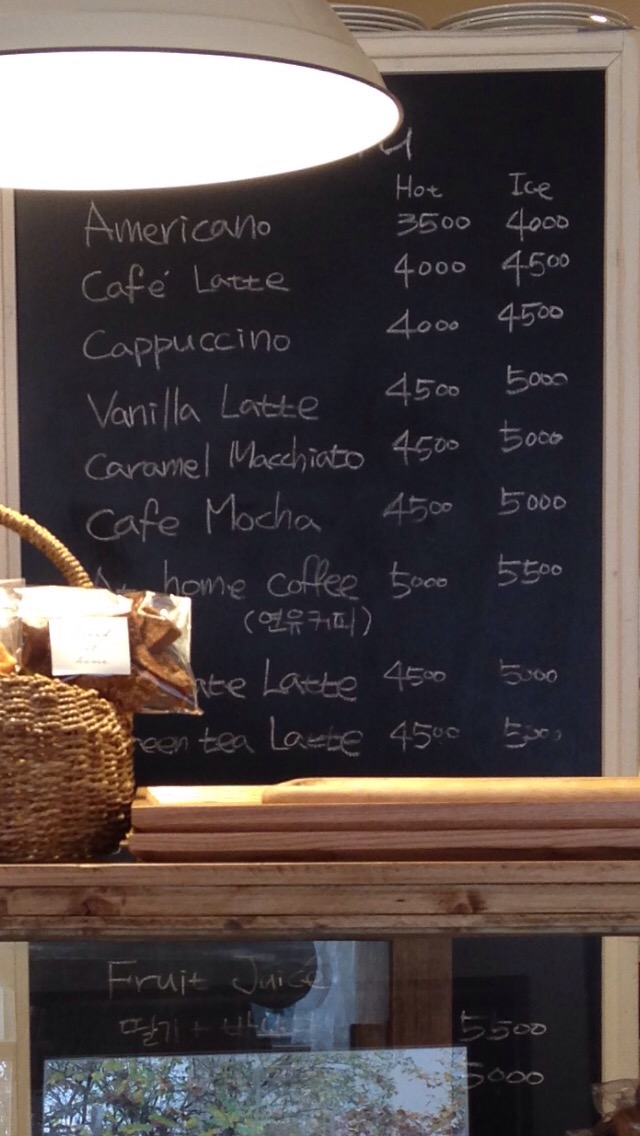 Hot Ice
Americano 3500 4000
Café Latte 4000 4500
Cappuccino 4000 4500
Vanilla Latte 4500 5000
Caramel Macchiato 4500 5000
Cafe Mocha 4500 5000
home coffee 5000 5500
(연유커피)
Latte 4500 5000
tea Latte 4500 5000
Fruit Juice
딸기 + 5500
5000